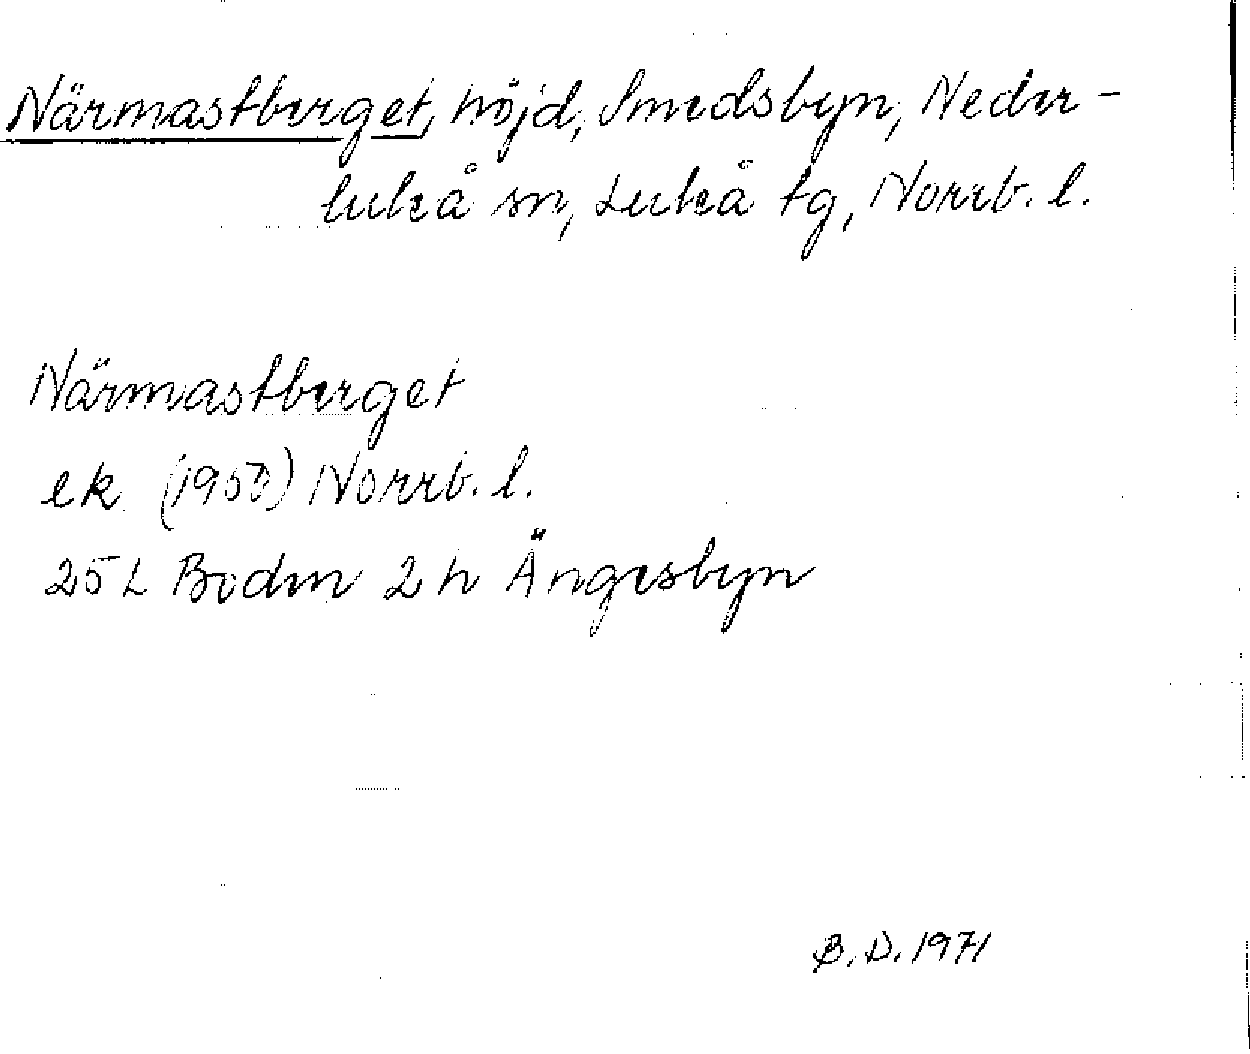 Närmastberget, höjd, Smedsbyn, Neder-
luleå sn, Luleå tg, Norrb. l.
Närmastberget
ek (1950) Norrb. l.
25 L Boden 2 h Ängesbyn
B. D. 1971